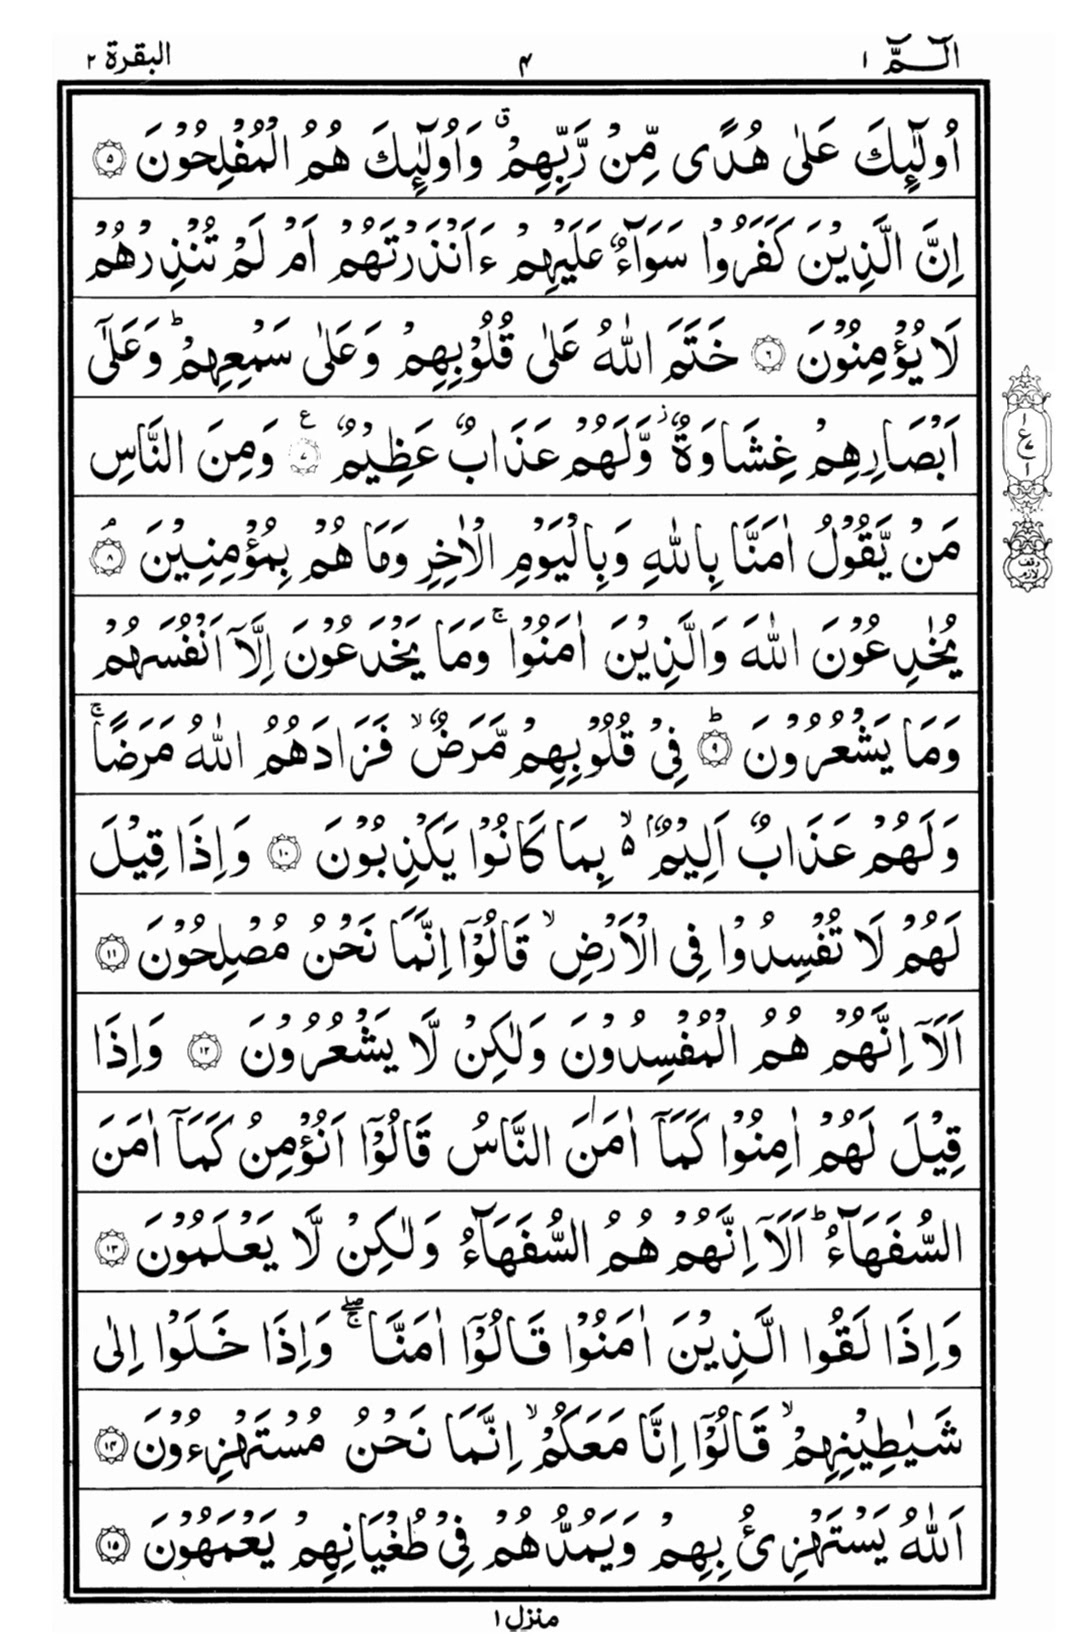 الٓـمّٓ ١
٤
البقرة ٢
اُولٰٓئِكَ عَلٰى هُدًى مِّنْ رَّبِّهِمْ ۗ وَاُولٰٓئِكَ هُمُ الْمُفْلِحُوْنَ ۝٥
اِنَّ الَّذِيْنَ كَفَرُوْا سَوَآءٌ عَلَيْهِمْ ءَاَنْذَرْتَهُمْ اَمْ لَمْ تُنْذِرْهُمْ
لَا يُؤْمِنُوْنَ ۝٦ خَتَمَ اللّٰهُ عَلٰى قُلُوْبِهِمْ وَعَلٰى سَمْعِهِمْ ؕ وَعَلٰٓى
اَبْصَارِهِمْ غِشَاوَةٌ ز وَّلَهُمْ عَذَابٌ عَظِيْمٌ ۝٧ ع وَمِنَ النَّاسِ
مَنْ يَّقُوْلُ اٰمَنَّا بِاللّٰهِ وَبِالْيَوْمِ الْاٰخِرِ وَمَا هُمْ بِمُؤْمِنِيْنَ ۘ ۝٨
يُخٰدِعُوْنَ اللّٰهَ وَالَّذِيْنَ اٰمَنُوْا ۚ وَمَا يَخْدَعُوْنَ اِلَّآ اَنْفُسَهُمْ
وَمَا يَشْعُرُوْنَ ؕ ۝٩ فِيْ قُلُوْبِهِمْ مَّرَضٌ ۙ فَزَادَهُمُ اللّٰهُ مَرَضًا ۚ
وَلَهُمْ عَذَابٌ اَلِيْمٌۢ ۙ۵ بِمَا كَانُوْا يَكْذِبُوْنَ ۝١٠ وَاِذَا قِيْلَ
لَهُمْ لَا تُفْسِدُوْا فِى الْاَرْضِ ۙ قَالُوْٓا اِنَّمَا نَحْنُ مُصْلِحُوْنَ ۝١١
اَلَآ اِنَّهُمْ هُمُ الْمُفْسِدُوْنَ وَلٰكِنْ لَّا يَشْعُرُوْنَ ۝١٢ وَاِذَا
قِيْلَ لَهُمْ اٰمِنُوْا كَمَآ اٰمَنَ النَّاسُ قَالُوْٓا اَنُؤْمِنُ كَمَآ اٰمَنَ
السُّفَهَآءُ ؕ اَلَآ اِنَّهُمْ هُمُ السُّفَهَآءُ وَلٰكِنْ لَّا يَعْلَمُوْنَ ۝١٣
وَاِذَا لَقُوا الَّذِيْنَ اٰمَنُوْا قَالُوْٓا اٰمَنَّا ۖۚ وَاِذَا خَلَوْا اِلٰى
شَيٰطِيْنِهِمْ ۙ قَالُوْٓا اِنَّا مَعَكُمْ ۙ اِنَّمَا نَحْنُ مُسْتَهْزِءُوْنَ ۝١٤
اَللّٰهُ يَسْتَهْزِئُ بِهِمْ وَيَمُدُّهُمْ فِيْ طُغْيَانِهِمْ يَعْمَهُوْنَ ۝١٥
١
ع٧
١
وقف لازم
منزل ١